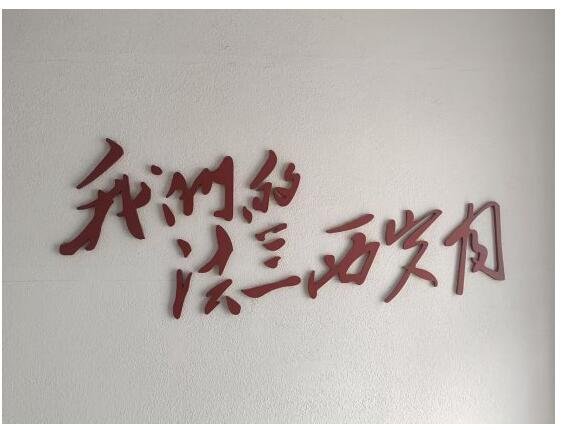 我们的
法兰西岁月